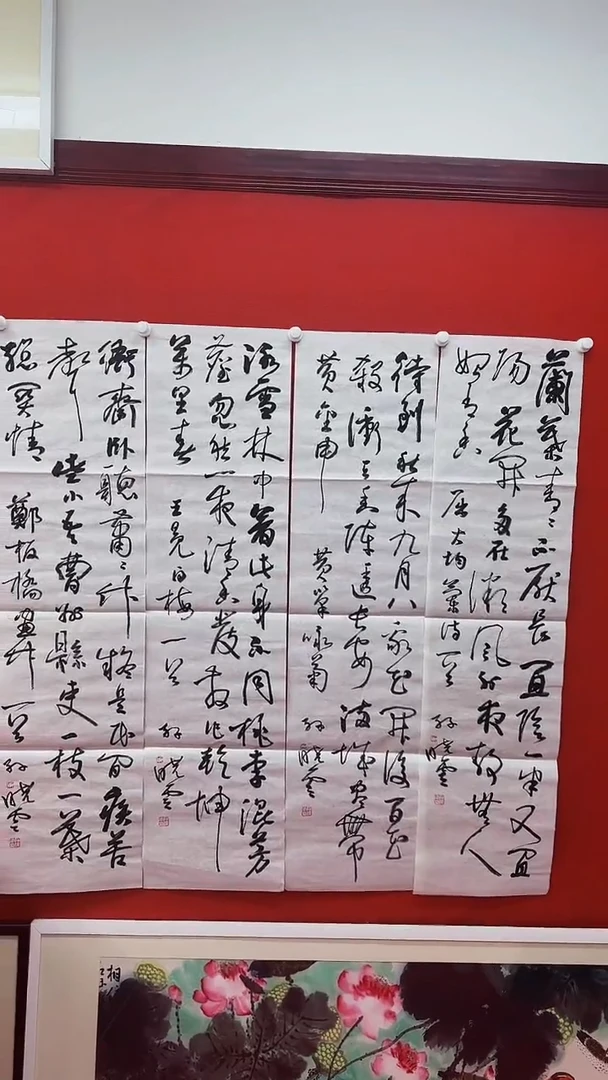 蘭葉青々不厭長宜陰一半又宜
陽花開多在微風外夜靜無人
始有香 屈大均蘭詩一首 孫曉雲
待到秋來九月八我花開後百花
殺衝天香陣透長安滿城盡帶
黃金甲 黃巢咏菊 孫曉雲
冰雪林中著此身不同桃李混芳
塵忽然一夜清香發散作乾坤
萬里春 王冕白梅一首 孫曉雲
衙齋卧聽蕭々竹疑是民間疾苦
聲些小吾曹州縣吏一枝一葉
總關情 鄭板橋畫竹一首 孫曉雲